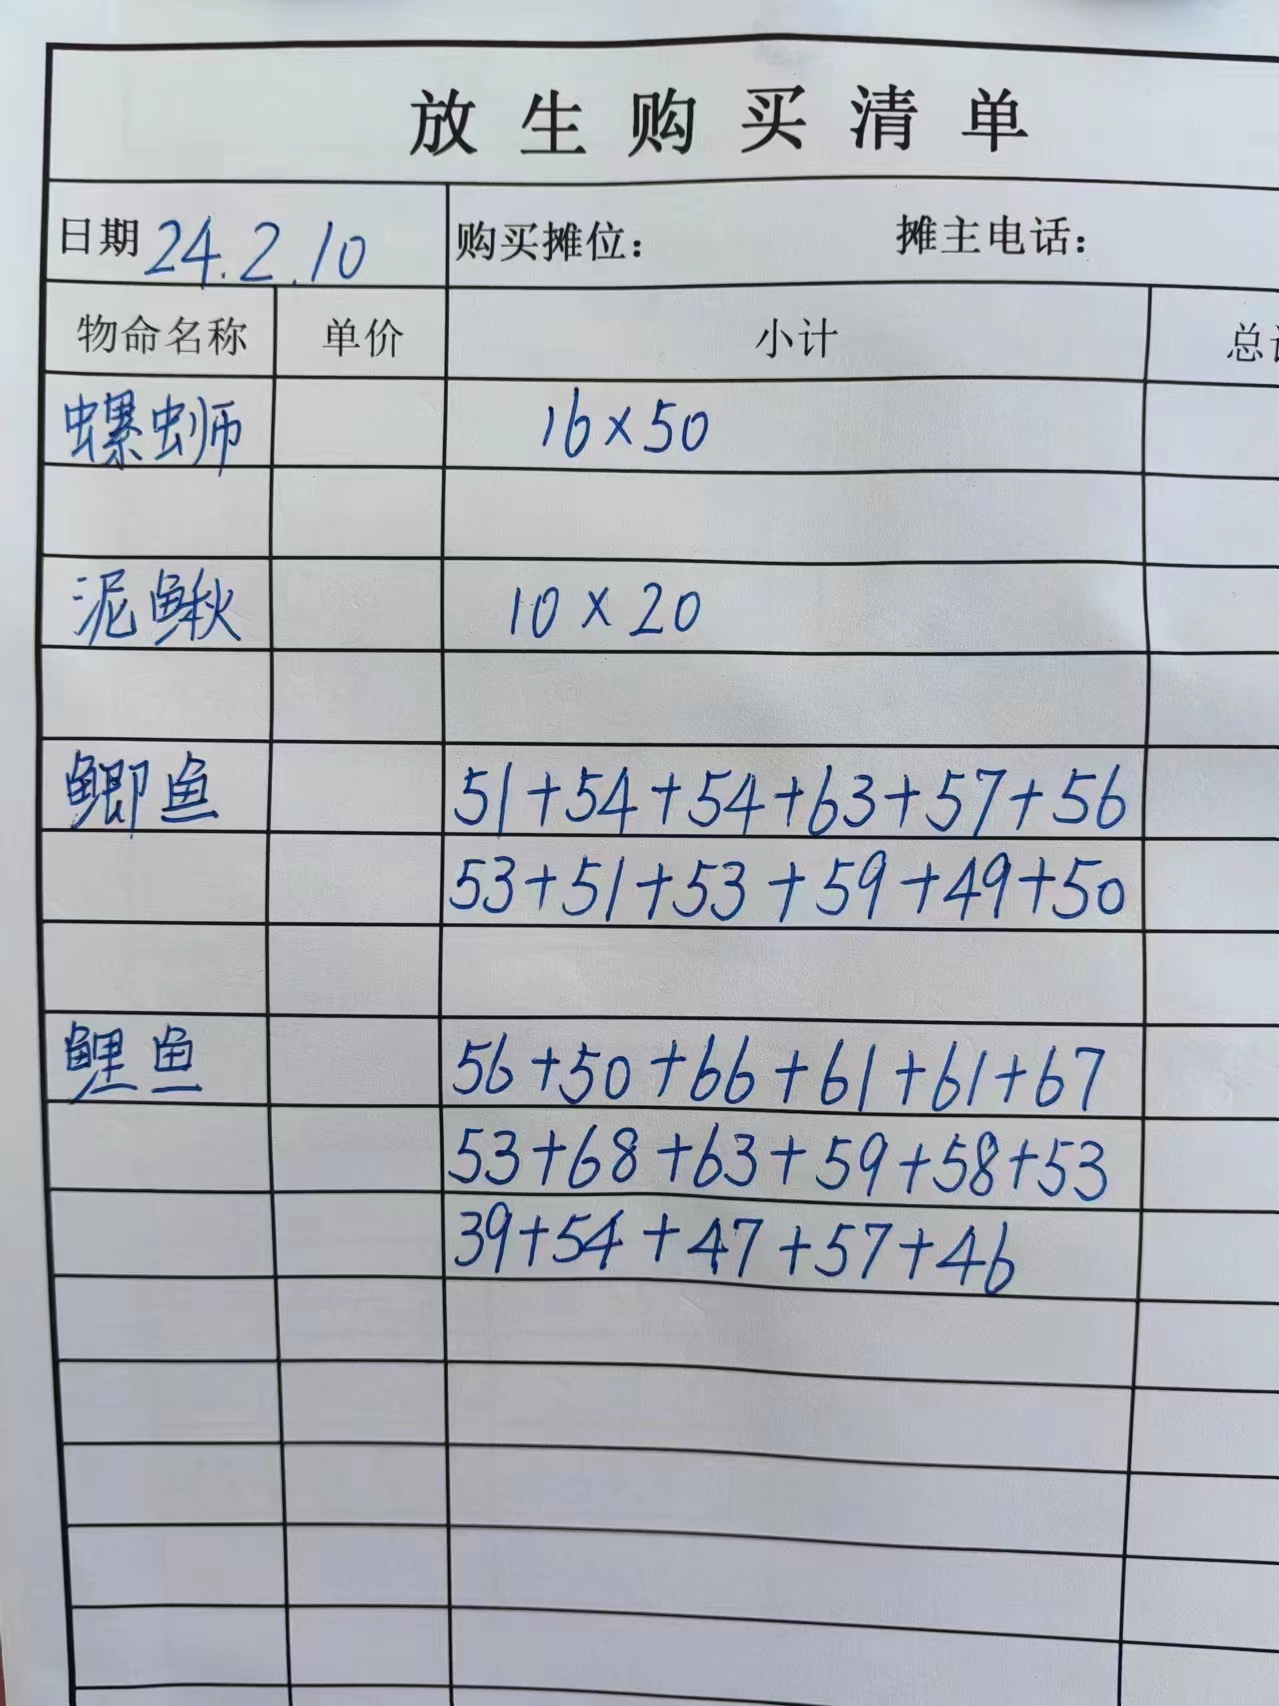 放生购买清单
日期 24.2.10 购买摊位： 摊主电话：
物命名称 单价 小计 总
螺蛳 16×50
泥鳅 10×20
鲫鱼 51+54+54+63+57+56
53+51+53+59+49+50
鲤鱼 56+50+66+61+61+67
53+68+63+59+58+53
39+54+47+57+46